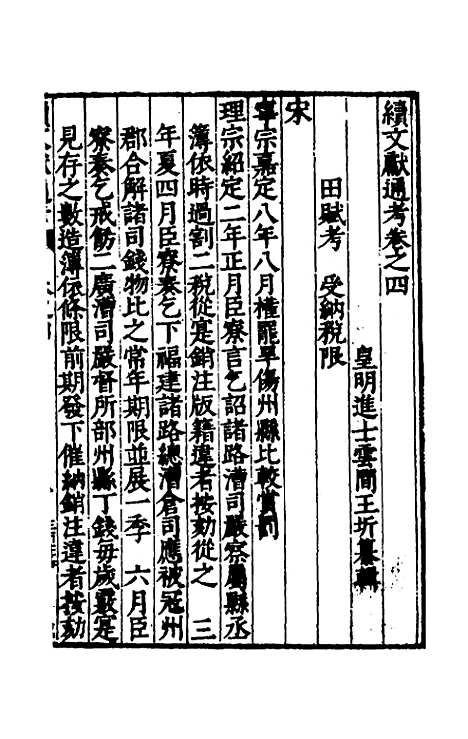 續文獻通考卷之四
皇明進士雲間王圻纂輯
田賦考 受納稅限
宋
寧宗嘉定八年八月權罷旱傷州縣比較賞罰
理宗紹定二年正月臣寮言乞詔諸路漕司嚴察屬縣丞
簿依時過割二稅從寔銷注版籍違者按劾從之 三
年夏四月臣寮奏乞下福建諸路總漕倉司應被冦州
郡合解諸司錢物比之常年期限並展一季 六月臣
寮奏乞戒飭二廣漕司嚴督所部州縣丁錢每歲覈寔
見存之數造簿依條限前期發下催納銷注違者按劾